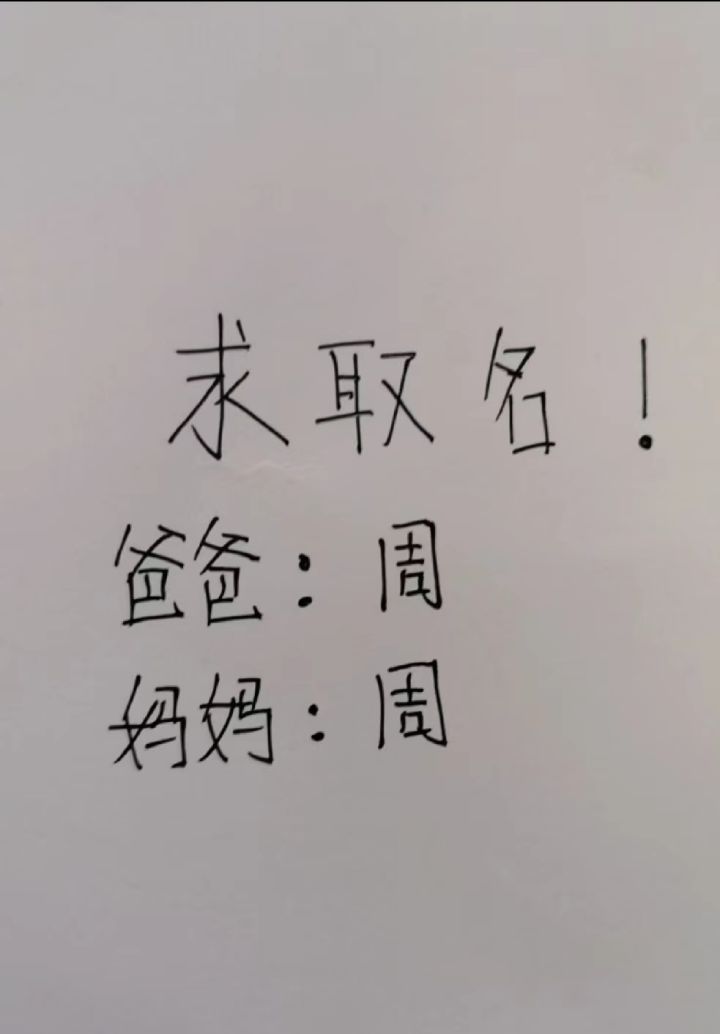 求取名！
爸爸：周
妈妈：周